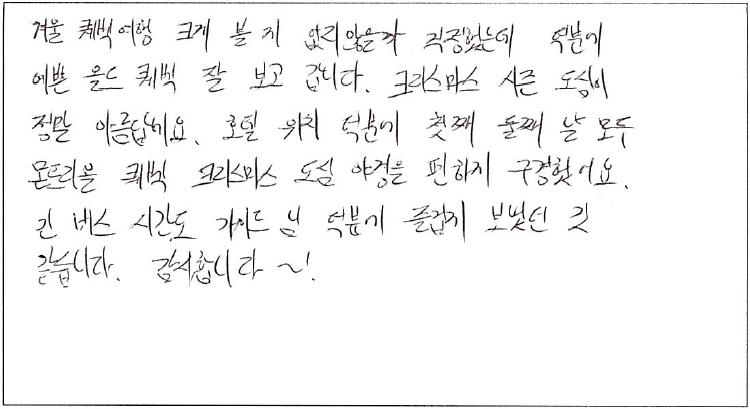 겨울 퀘벡여행 크게 볼 게 없지않을까 걱정했는데 덕분에
예쁜 올드 퀘벡 잘 보고 갑니다. 크리스마스 시즌 도심이
정말 아름답네요. 호텔 위치 덕분에 첫째 둘째 날 모두
몬트리올 퀘벡 크리스마스 도심 야경을 편하게 구경했어요.
긴 버스 시간도 가이드 님 덕분에 즐겁게 보냈던 것
같습니다. 감사합니다 ~!